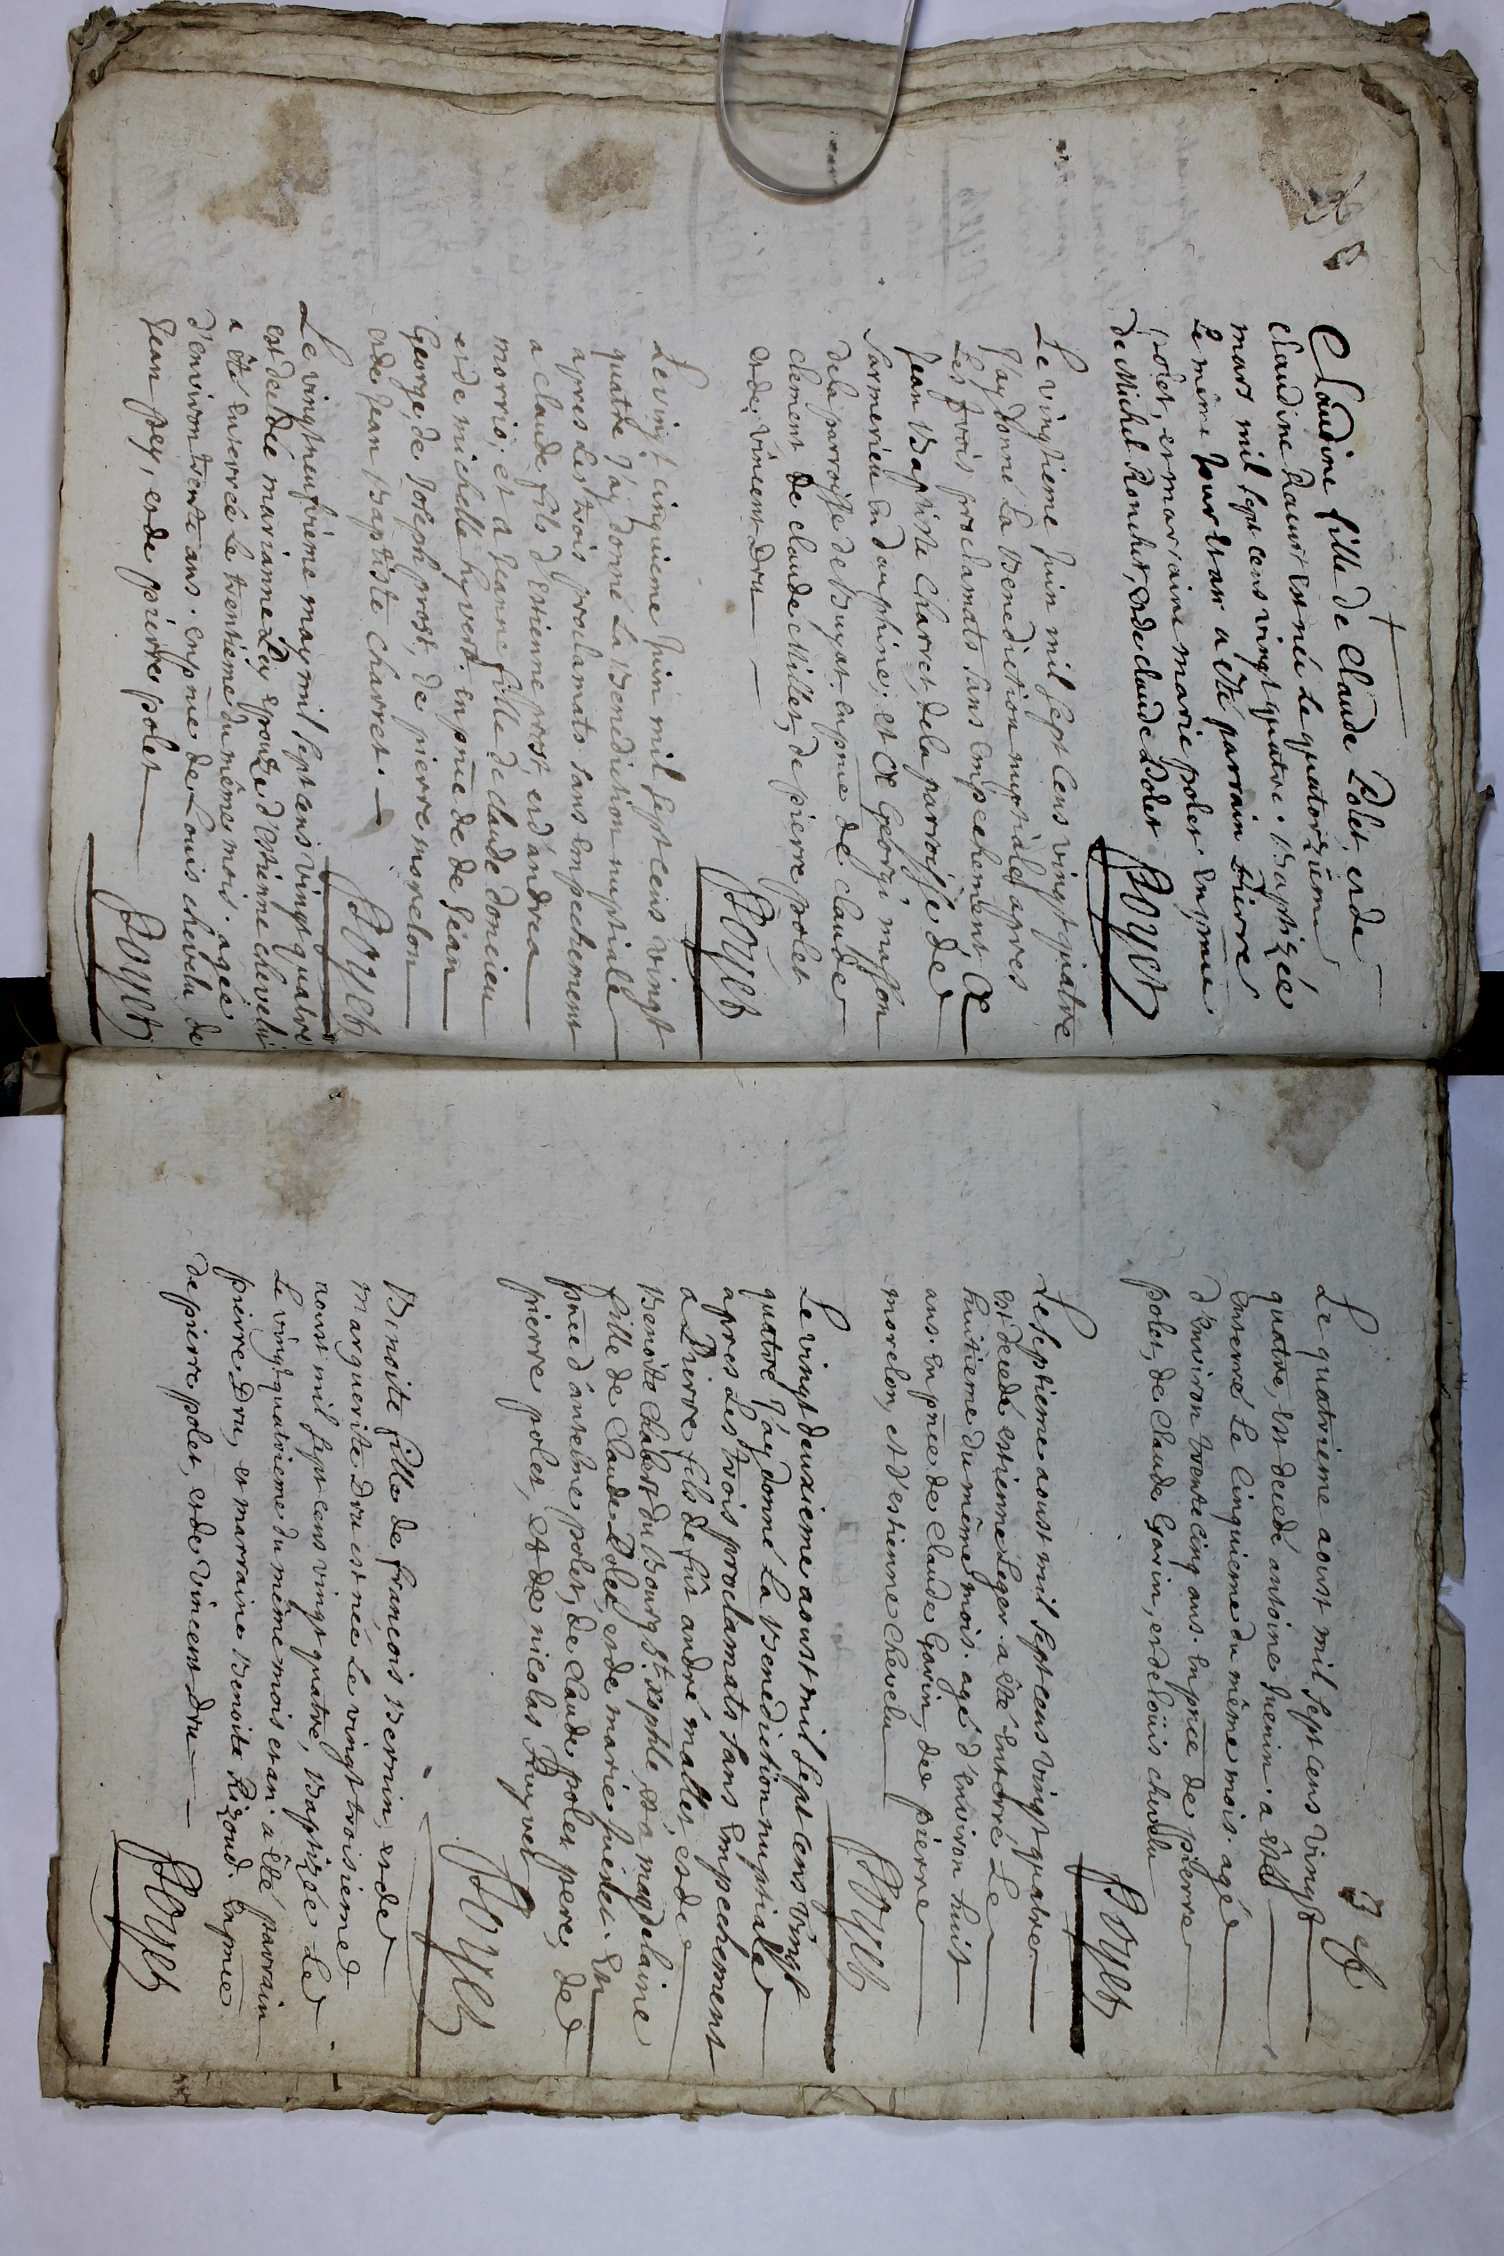 Claudine fille de Claude Polet, et de
claudine Raent est née le quatorzieme
mars mil sept cens vingt quatre. Baptizée
Le même Jour et an a êtté parrain Pierre
polet, et marraine marie polet. en pnce
de Michel Ronchet, et de claude Polet
Poyet
Le vingtieme Juin mil sept cens vingt quatre
J'ay donné La Benediction nuptiale apres
Les trois proclamats sans empechement a
Jean Baptiste Charret, de la parroisse de
Sarmerieu en dauphiné; et a Georgi masson
de la parroisse de Buyat. en pnce de claude
clement de claude Millet, de pierre polet
et de vincent Dru
Poyet
Le vingt cinquieme Juin mil sept cens vingt
quatre J'ay donné La Benediction nuptiale
apres Les trois proclamats sans empechement
a claude fils d'Estienne prost, et d'andrea
morris; et a Jeanne fille de claude doncieu
et de michelle hyvert. en pnce de de Jean
George, de Joseph prost, de pierre morelon
et de Jean Baptiste Charret.
Poyet
Le vingt neufviéme may mil sept cens vingt quatre
est decedée marianne Ley epouze d'estienne chevelu
a êtté enterrée Le trentiéme du même mois. agée
d'environ trente ans. en pnce de Louis chevelu, de
Jean pey, et de pierre polet
Poyet
3
Le quatrieme aoust mil sept cens vingt
quatre, est decedé antoine Juenin. a êtté
enterré Le cinquieme du même mois. agé
d'environ trente cinq ans. en pnce de pierre
polet, de Claude Gorin, et de Loüis chevelu
Poyet
Le septieme aoust mil sept cens vingt quatre
est decedé estienne Leger a êtté enterré Le
huitieme du même mois. agé d'environ huit
ans. en pnce de Claude Gorin, de pierre
morelon, et d'estienne chevelu
Poyet
Le vingt deuxieme aoust mil sept cens vingt
quatre J'ay donné La Benediction nuptiale
apres Les trois proclamats sans empechement
a Pierre fils de fût andré mallet, et de
Benoite Chabert du Bourg St. Xophle, et a magdelaine
fille de Claude Polet, et de marie Juenet. en
pnce d'antelme polet, de Claude polet pere, de
pierre polet, et de nicolas Ruyvet
Poyet
Benoite fille de francois Bernin, et de
marguerite Dru est née Le vingt troisieme
aoust mil sept cens vingt quatre, Baptizée Le
Le vingt quatrieme du même mois et an. a êtté parrain
pierre Dru, et marraine Benoite Rizoud. en pnce
de pierre polet, et de vincent Dru
Poyet